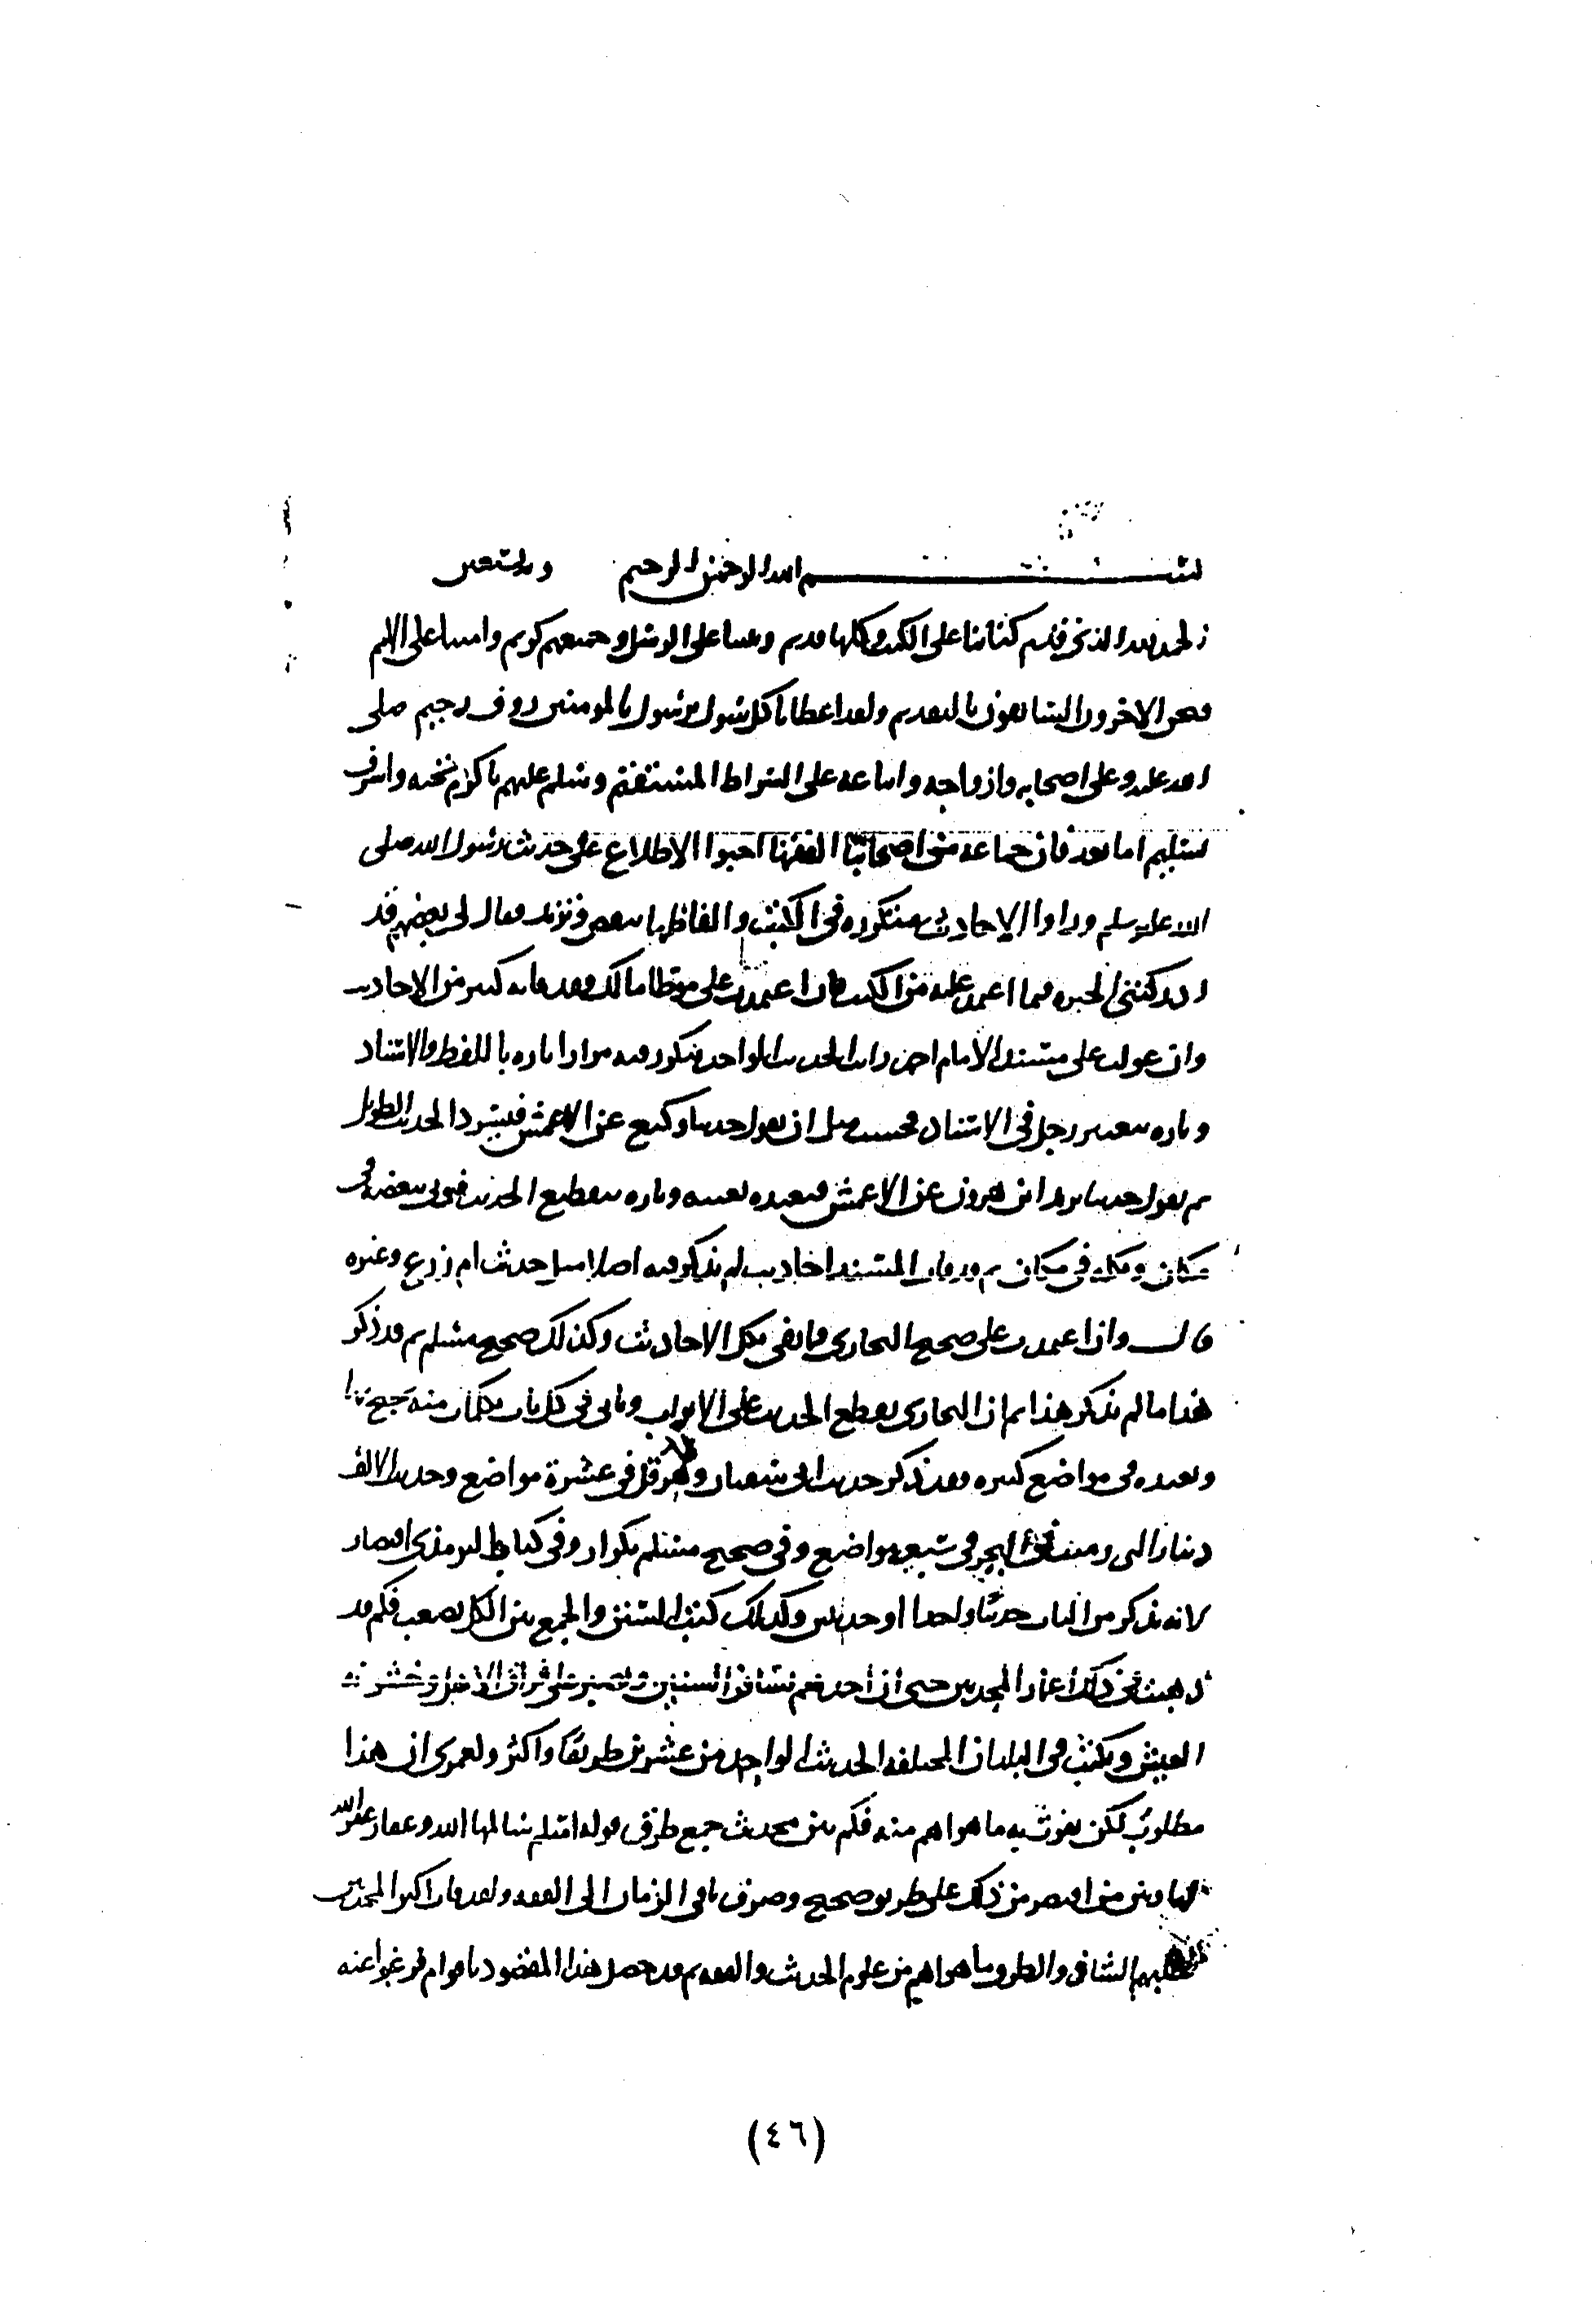 بسم الله الرحمن الرحيم وبه نستعين
الحمد لله الذي قدم كتابنا على الكتب وكلها قديم ونبينا على الرسل وجميعهم كريم وامتنا على الامم
فنحن الاخرون السابقون بالتقديم ولقد اعطانا كل سول برسول بالمومنين روف رحيم صلى
الله عليه وعلى اصحابه وازواجه واتباعه على الصراط المستقيم وسلم عليهم باكرم تحيه واشرف
تسليم اما بعد فان جماعة من اصحابنا الفقها احبوا الاطلاع على حديث رسول الله صلى
الله عليه وسلم وراوا الاحاديث متكرره في الكتب والفاظها تنقص وتزيد فقال لي بعضهم قد
ادركتني الحيره فيما اعتمد عليه من الكتب فان اعتمدت على موطا مالك فقد فاته كثير من الاحاديث
وان عولت على مسند الامام احمد رايت الحديث الواحد يتكرر فيه مرارا تاره باللفظ والاسناد
وتاره بتغيير رجل في الاسناد فحسب مثل ان يقول حدثنا وكيع عن الاعمش فيسرد الحديث الطويل
ثم يقول حدثنا يزيد ابن هرون عن الاعمش فيعيده بعينه وتاره يتقطع الحديث فيوتى ببعضه في
مكان وتمامه في مكان ثم قد فات المسند احاديث لم تذكر فيه اصلا مثل حديث ام زرع وغيره
قال واذا اعتمدت على صحيح البخاري فما يفي بكل الاحاديث وكذلك صحيح مسلم ثم قد ذكر
هذا ما لم يذكر هذا ثم ان البخاري يقطع الحديث على الابواب وياتي في كل باب بكلمات منه
ويعيده في مواضع كثيره فقد ذكر حديث ابي سفيان وهرقل في عشرة مواضع وحديث الالف
دينار التي رميت في البحر في سبعة مواضع وفي صحيح مسلم تكرار وفي كتاب الترمذي اقتصار
لانه يذكر من الباب حديثا واحدا او حديثين وكذلك كتب السنن والجمع بين الكل يصعب فكم قد
ذهبت في ذلك اعمار المحدثين حتى ان احدهم يسافر السنين ويصبر على فراق الاهل وخشونة
العيش ويكتب في البلدان المختلفه الحديث الواحد من عشرين طريقا واكثر ولعمري ان هذا
مطلوب لكن يفوت به ما هو اهم منه فكم بين محدث جمع طرق قوله اسلم سالمها الله وغفار غفر الله
لها وبين من اقتصر من ذلك على طريق صحيح وصرف باقي الزمان الى الفقه ولقد فات اكثر المحدثين
بطلبهم المشاق والطرق ما هو اهم من علوم الحديث والفقه ثم قد حصل هذا المقصود باقوام فرغبوا عنه
(٤٦)